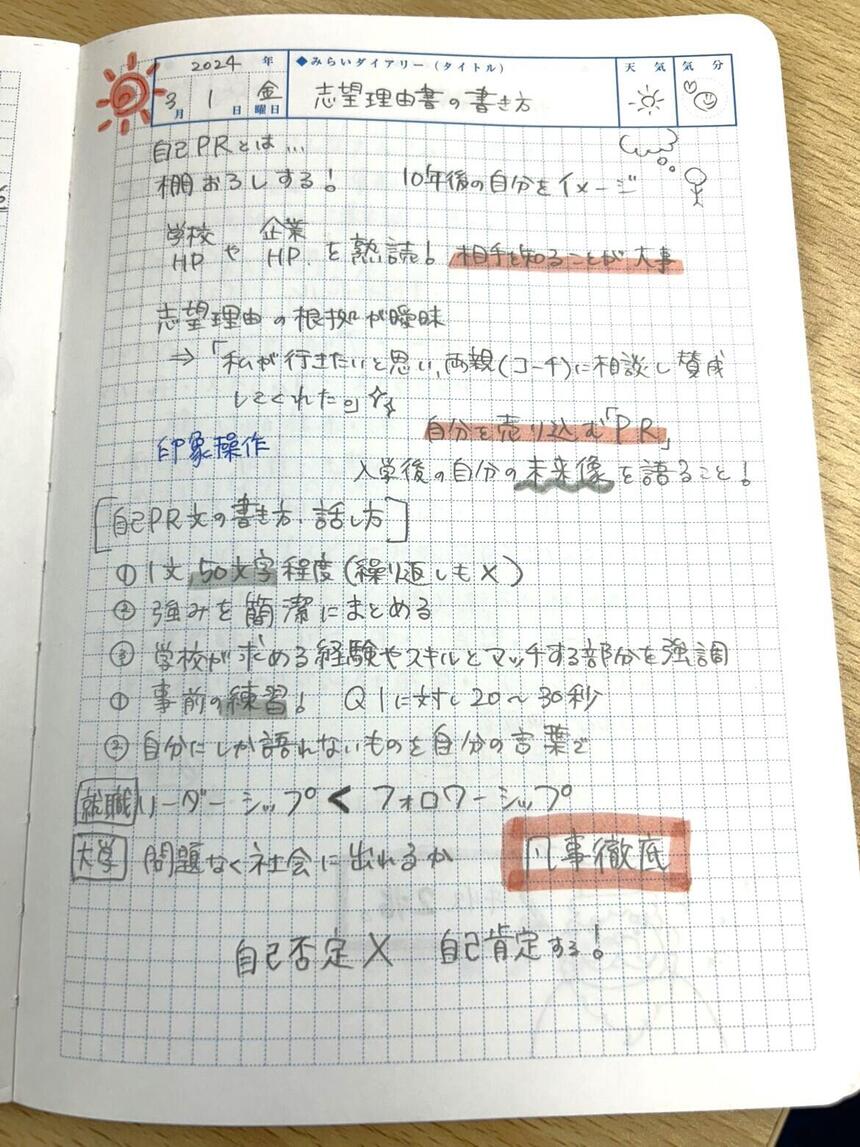 2024 年 ◆みらいダイアリー（タイトル） 天 気 気 分
3月 1日 金曜日 志望理由書の書き方
自己PRとは...
棚おろしする! 10年後の自分をイメージ
学校HP や 企業HP を熟読! 相手を知ることが大事
志望理由の根拠が曖昧
⇒「私が行きたいと思い、両親(コーチ)に相談し賛成
してくれた。」
自分を売り込む「PR」
印象操作
入学後の自分の未来像を語ること!
[自己PR文の書き方、話し方]
① 1文 50文字程度(繰り返しも×)
② 強みを簡潔にまとめる
③ 学校が求める経験やスキルとマッチする部分を強調
① 事前の練習! Q1に対し20〜30秒
② 自分にしか語れないものを自分の言葉で
就職 リーダーシップ < フォロワーシップ
大学 問題なく社会に出れるか 凡事徹底
自己否定× 自己肯定する!